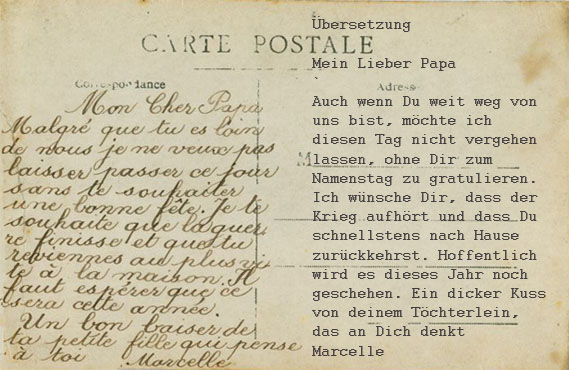 CARTE POSTALE
Correspondance
Adress
Mon Cher Papa
Malgré que tu es loin
de nous je ne veux pas
laisser passer ce jour
sans te souhaiter
une bonne fête. Je te
souhaite que la guer
re finisse et que tu
reviennes au plus vi
te à la maison. Il
faut espérer que ce
sera cette année.
Un bon baiser de
ta petite fille qui pense
à toi Marcelle
Übersetzung
Mein Lieber Papa
Auch wenn Du weit weg von
uns bist, möchte ich
diesen Tag nicht vergehen
lassen, ohne Dir zum
Namenstag zu gratulieren.
Ich wünsche Dir, dass der
Krieg aufhört und dass Du
schnellstens nach Hause
zurückkehrst. Hoffentlich
wird es dieses Jahr noch
geschehen. Ein dicker Kuss
von deinem Töchterlein,
das an Dich denkt
Marcelle